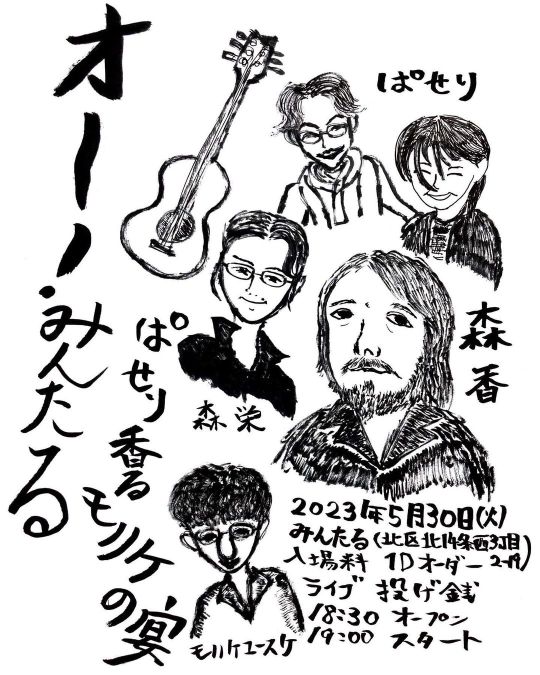 オー!・みんたる
ぱせり香るモリノケの宴
ぱせり
森栄
森香
モリノケユースケ
2023年5月30日(火)
みんたる(北区北14条西3丁目2-19)
入場料 1Dオーダー
ライブ 投げ銭
18:30 オープン
19:00 スタート